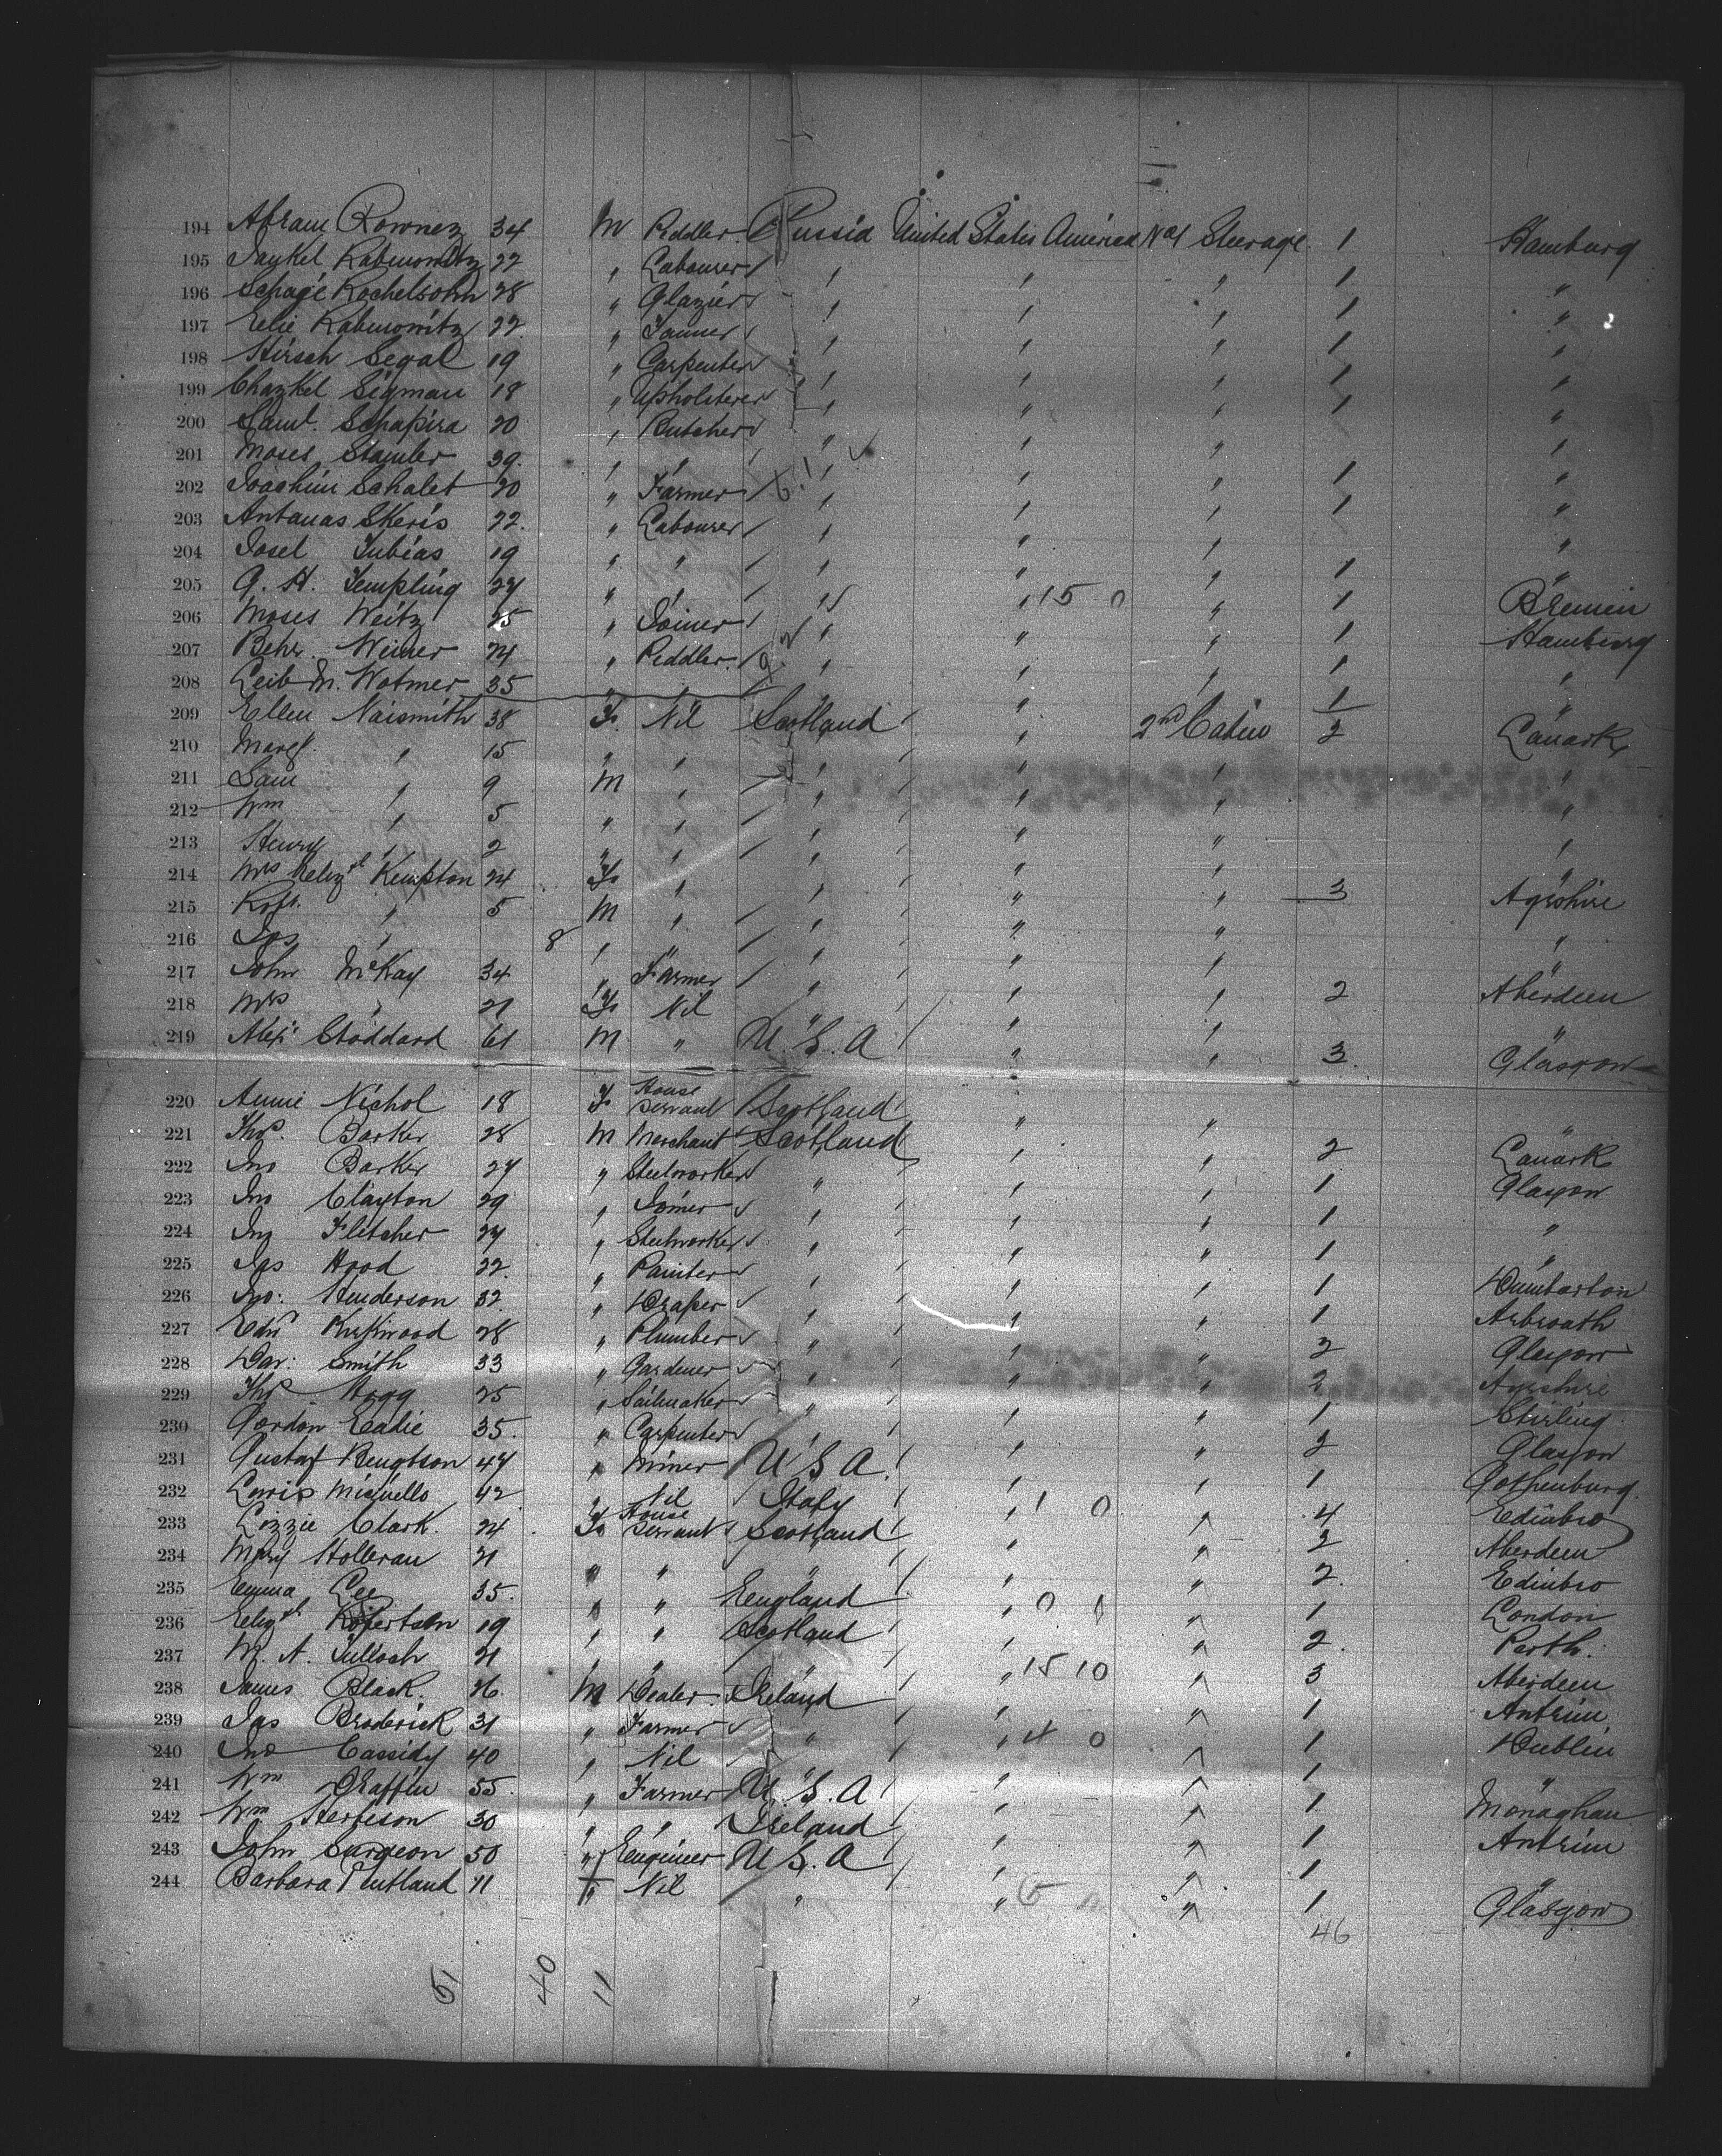 194 Abram Rownez 34 M Peddler Russia United States America No 1 Steerage 1 Hamburg
195 Jaykel Rabinowitz 22 " Labourer " " " 1 "
196 Schage Rochelsohn 28 " Glazier " " " 1 "
197 Elie Rabinowitz 22 " Tanner " " " 1 "
198 Hirsch Segal 19 " Carpenter " " " 1 "
199 Chazkel Sigman 18 " Upholsterer " " " 1 "
200 Saml. Schapira 20 " Butcher " " " "
201 Moses Stamler 39 " " " " " 1 "
202 Joachim Schalet 20 " Farmer " " " 1 "
203 Antanas Skeris 22 " Labourer " " " "
204 Josel Tubias 19 " " " " " 1 "
205 G. H. Templing 27 " " " " 15 0 " 1 Bremen
206 Moses Weitz 25 " Joiner " " " 1 Hamburg
207 Behr. Weiner 24 " Peddler " " " 1 "
208 Leib M. Wotmer 35 " " " 1 "
209 Ellen Naismith 38 F. Nil Scotland " 2nd Cabin 2 Lanark
210 Margt. " 15 " " " " " "
211 Sam " 9 M " " " " "
212 Wm " 5 " " " " " "
213 Henry " 2 " " " " "
214 Mrs Elizth Kempton 24 F " " " " 3 Ayrshire
215 Robt. " 5 M " " " " "
216 Jas " 8 " " " " " "
217 John McKay 34 " Farmer " " " 2 Aberdeen
218 Mrs " 21 F Nil " " " "
219 Alex. Stoddard 61 M " U.S.A " " 3 Glasgow
220 Annie Nichol 18 F House Servant Scotland " " "
221 Thos. Barker 28 M Merchant Scotland " " 2 Lanark
222 Jno Barker 27 " Steelworker " " " 1 Glasgow
223 Jno Clayton 29 " Joiner " " " 1 "
224 Jno Fletcher 27 " Steelworker " " " 1 "
225 Jas Hood 22 " Painter " " " 1 Dumbarton
226 Jno. Henderson 32 " Draper " " " 1 Arbroath
227 Edw Kirkwood 28 " Plumber " " " 2 Glasgow
228 Dav: Smith 33 " Gardener " " " 2 Ayrshire
229 Thos Hogg 25 " Sailmaker " " " 1 Stirling
230 Gordon Eadie 35 " Carpenter " " " 2 Glasgow
231 Gustaf Bengtson 47 " Miner U S A " " 1 Gothenburg
232 Louis 42 " Nil Italy " 1 0 " 4 Edinbro
233 Lizzie Clark 24 F House Servant Scotland " " 2 Aberdeen
234 Mary Holleran 21 " " " " " 2 Edinbro
235 Emma Lee 35 " " England " 0 " 1 London
236 Elizth Robertson 19 " " Scotland " " 2 Perth
237 M. A. Tulloch 21 " " " " 15 10 " 3 Aberdeen
238 James Black 26 M Dealer Ireland " " 1 Antrim
239 Jas Broderick 31 " Farmer " " 4 0 " 1 Dublin
240 Jno Cassidy 40 " Nil " " " 1 "
241 Wm Graffin 55 " Farmer U.S.A " " 1 Monaghan
242 Wm Herbeson 30 " " Ireland " " 1 Antrim
243 John Surgeon 50 " Engineer U S. A " " 1 "
244 Barbara Pentland 11 " Nil " " " 1 Glasgow
46
51 40 11